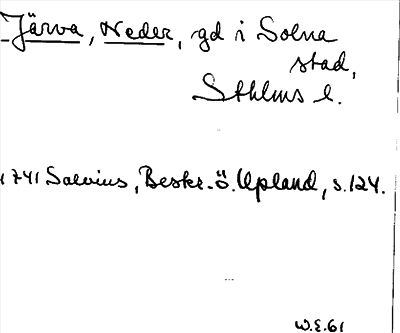 Järva, Neder, gd i Solna
stad,
Sthlms l.
1741 Salvius, Beskr. ö. Upland, s. 124.
W.E. 61